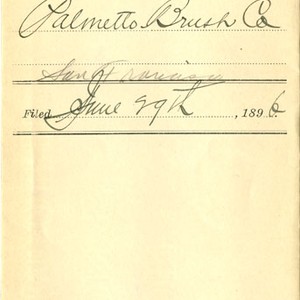 Palmetto Brush Co
San Francisco
Filed June 29th, 1896